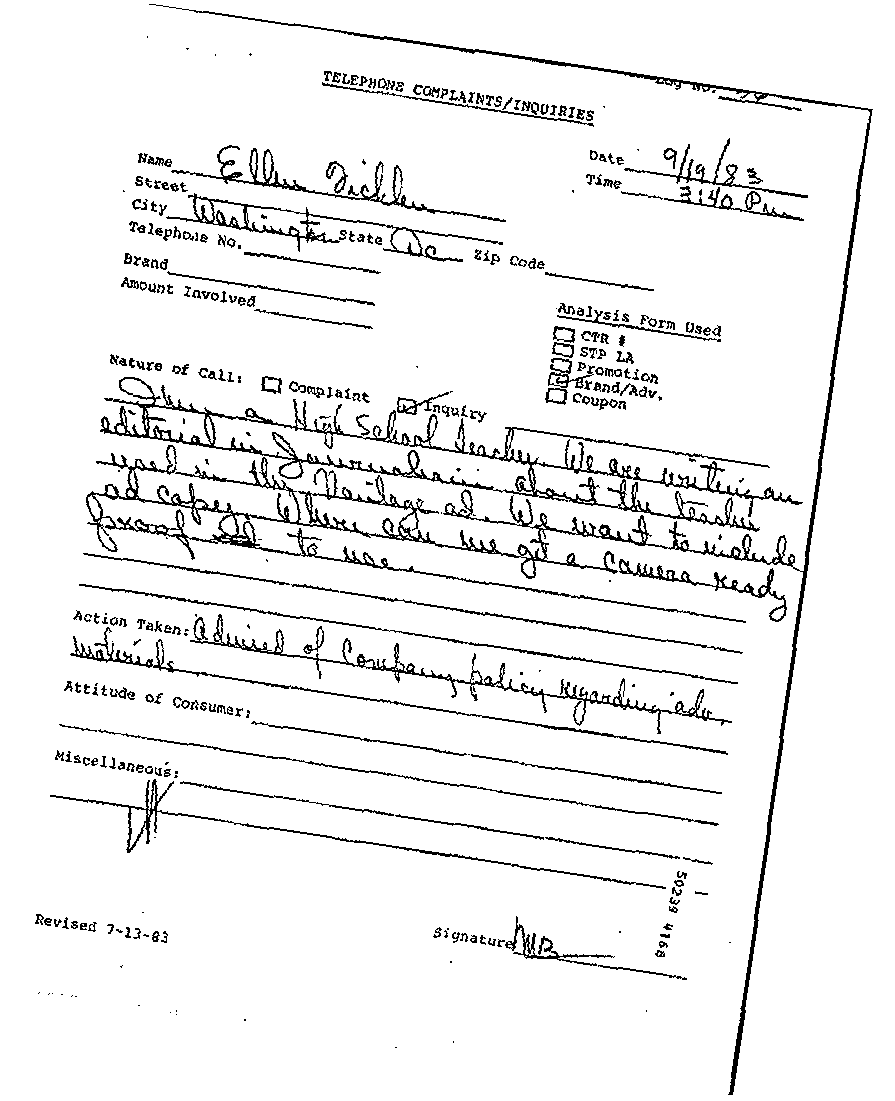 Log No.
TELEPHONE COMPLAINTS/INQUIRIES
Date 9/19/83
Time 3:40 Pm
Name Ellen
Street
City Washington State DC Zip Code
Telephone No.
Brand
Amount Involved
Analysis Form Used
CTR #
STP LA
Promotion
Brand/Adv.
Coupon
Nature of Call: Complaint Inquiry
I'm a High School teacher. We are writing an
editorial in Journalism about the teacher
used in the Vantage ad. We want to include
ad copy. Where can we get a camera ready
proof to use.
Action Taken: Advised of Company policy regarding adv.
materials
Attitude of Consumer:
Miscellaneous:
50239 4168
Revised 7-13-83
Signature MB